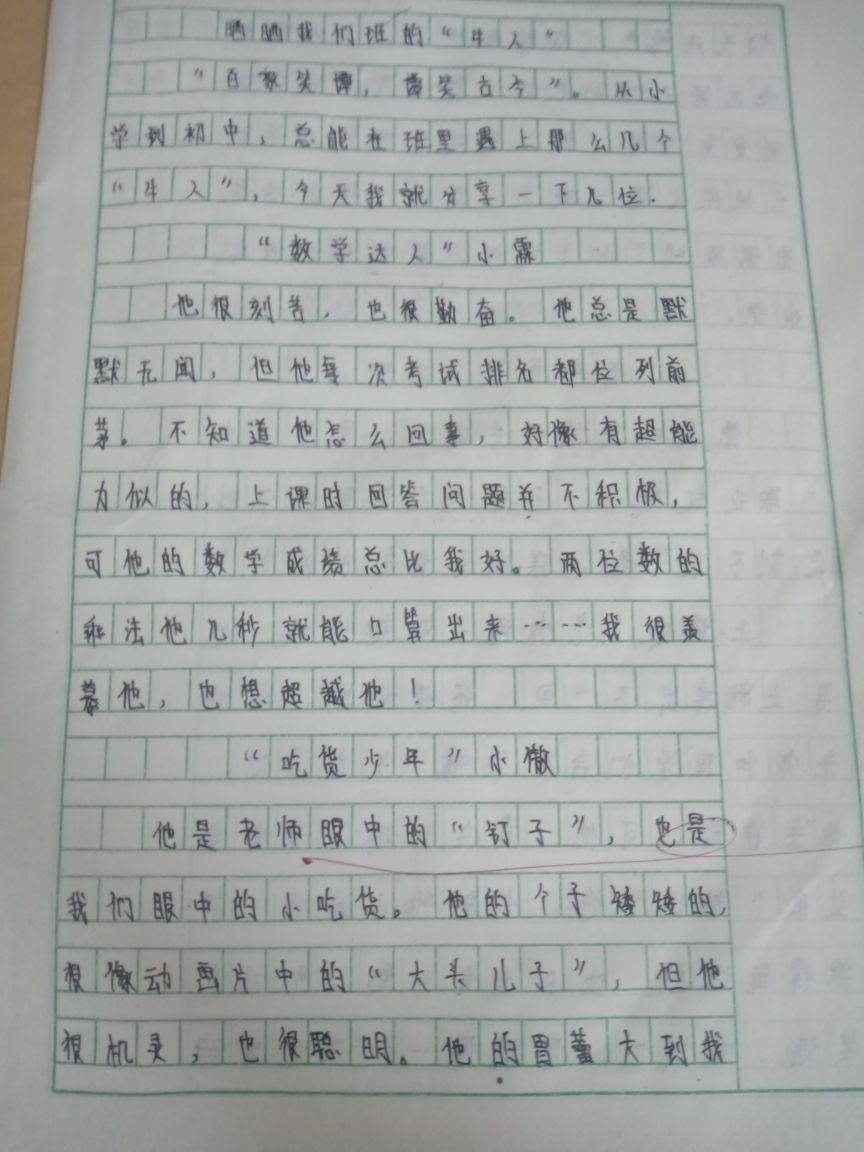 晒晒我们班的“牛人”
“百家笑谭，谭笑古今”。从小
学到初中，总能在班里遇上那么几个
“牛人”，今天我就分享一下几位.
“数学达人”小霖
他很刻苦，也很勤奋。他总是默
默无闻，但他每次考试排名都位列前
茅。不知道他怎么回事，好像有超能
力似的，上课时回答问题并不积极，
可他的数学成绩总比我好。两位数的
乘法他几秒就能口算出来……我很羡
慕他，也想超越他！
“吃货少年”小傲
他是老师眼中的“钉子”，也是
我们眼中的小吃货。他的个子矮矮的，
很像动画片中的“大头儿子”，但他
很机灵，也很聪明。他的胃大到我